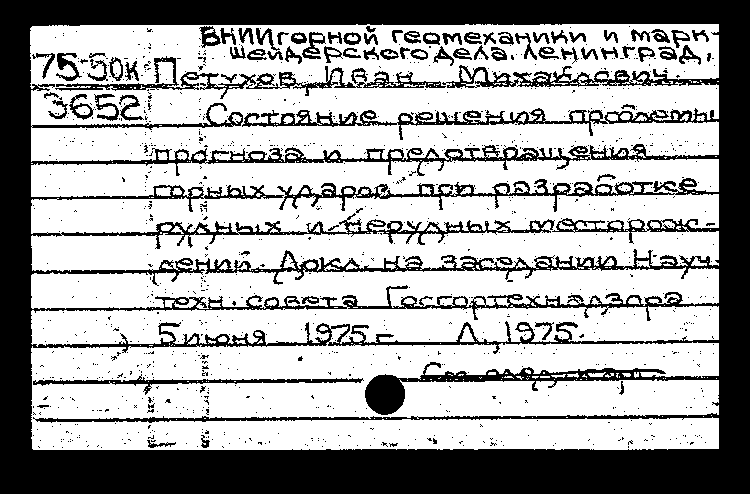 ВНИИгорной геомеханики и марк-
шейдерского дела. Ленинград,
75-50к Петухов, Иван Михайлович.
3652 Состояние решения проблемы
прогноза и предотвращения
горных ударов при разработке
рудных и нерудных месторож-
дений. Докл. на заседании Науч.
техн. совета Госгортехнадзора
5 июня 1975 г. Л., 1975.
См. след. карт.